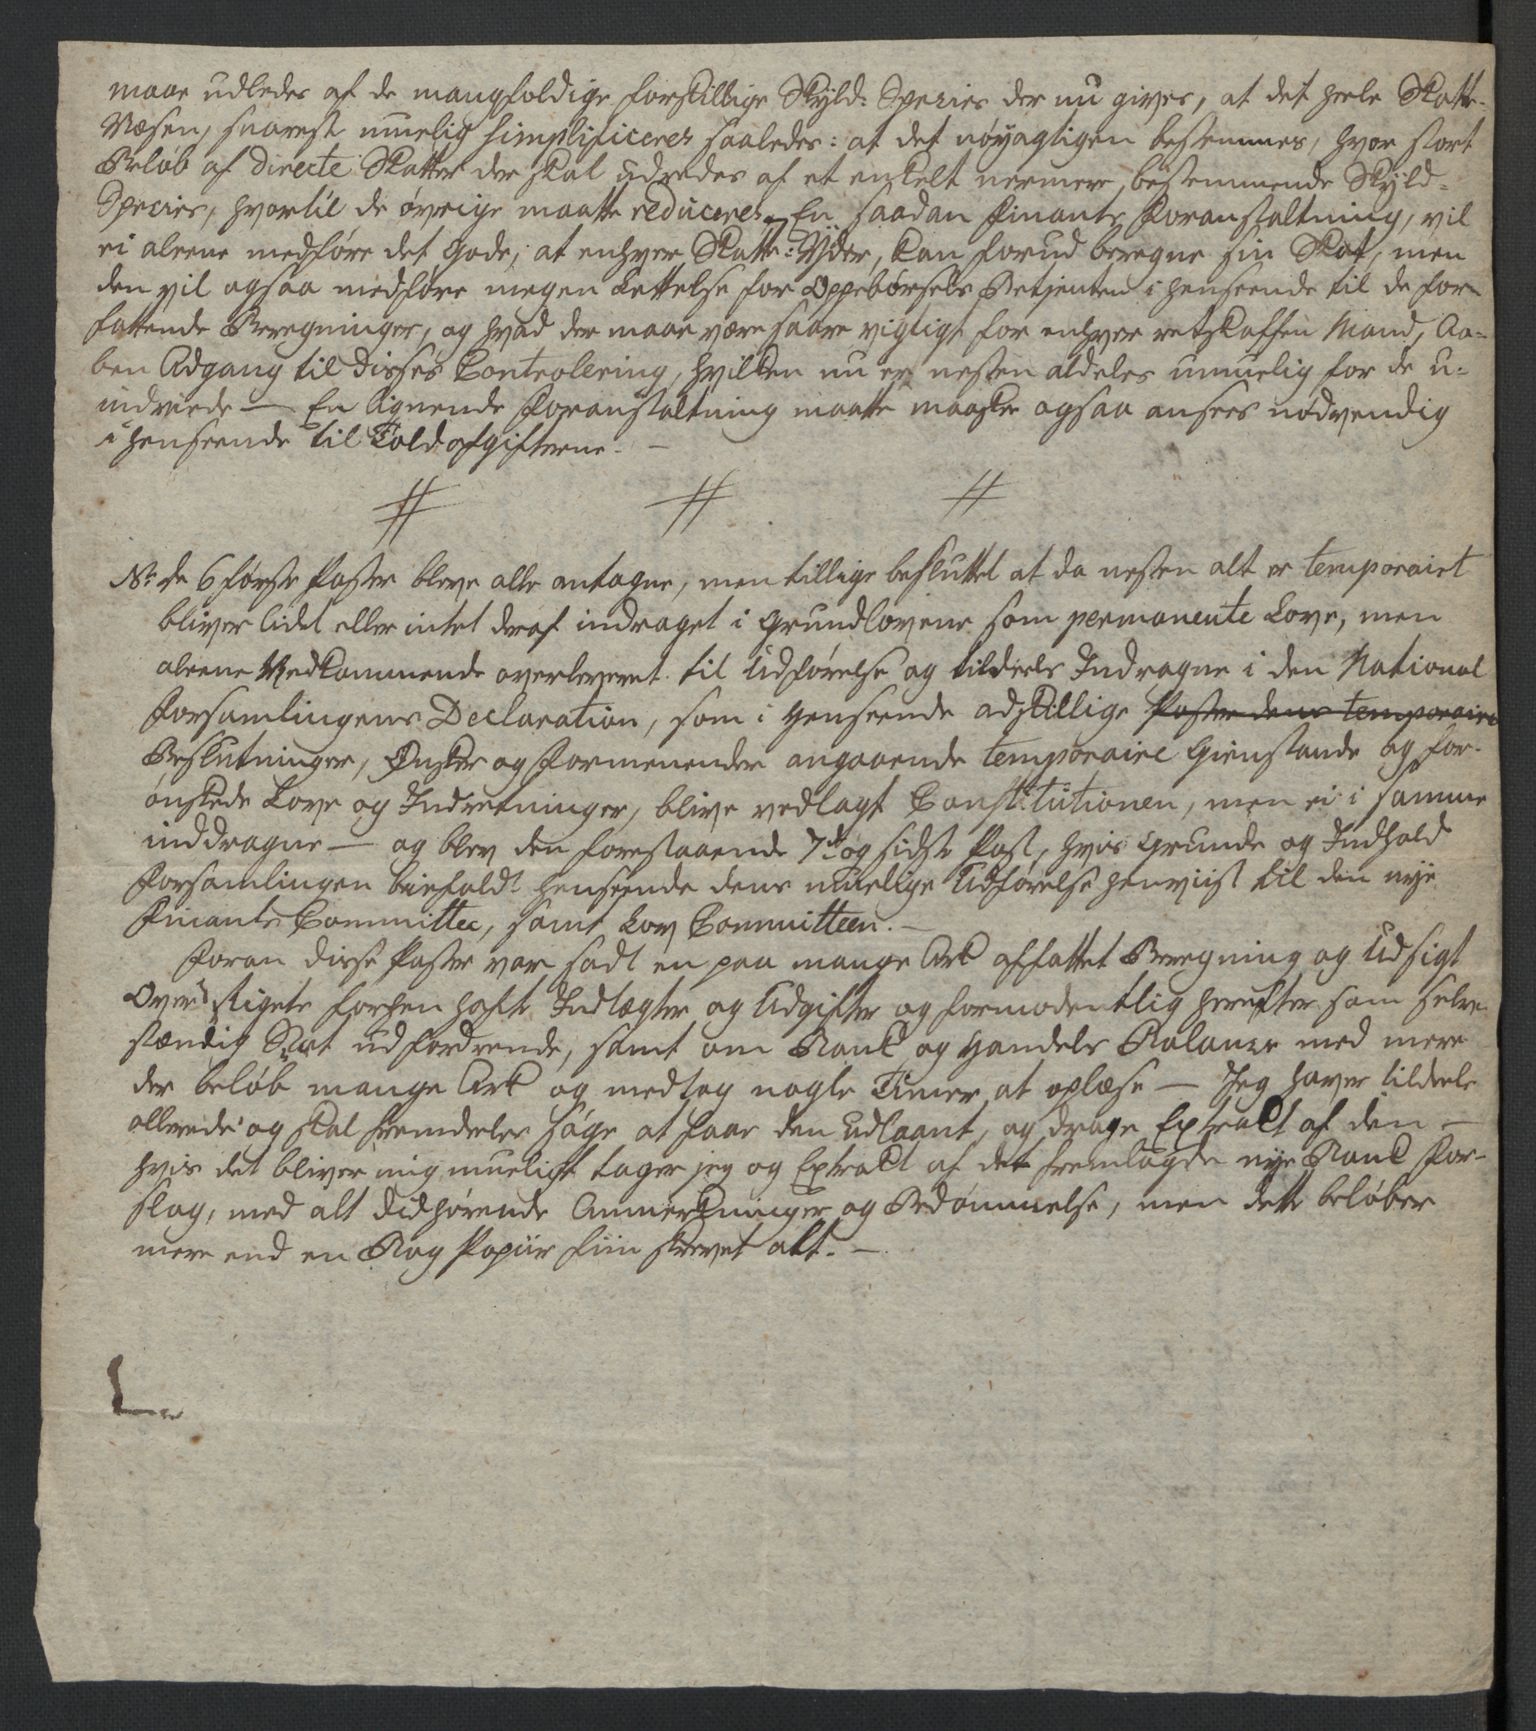 maae udledes af de mangfoldige forskillige Skyld: Species der nu gives, at det heele Skatte-
Væsen, snarest muelig simplificeres saaledes: at det nøyagtigen bestemmes, hvor stort
Beløb af directe Skatter der skal udredes af et enkelt nermere bestemmende Skyld-
Species, hvortil de øvrige maatte reduceres. En saadan Finants Foranstaltning, vil
ei aleene medføre det Gode, at enhver Skatte: Yder, kan forud beregne sin Skat, men
den vil ogsaa medføre megen Lettelse for Oppebørsels Betjenten i henseende til de for-
fattende Beregninger, og hvad der maae være saare vigtigt for enhver retskaffen Mand, Aa-
ben Adgang til disses Controllering, hvilken nu er nesten aldeles umuelig for de u-
indviede — En lignende Foranstaltning maatte maaske ogsaa ansees nødvendig
i henseende til Toldafgifterne. —
# # #
Nb: de 6 første Poster bleve alle antagne, men tillige besluttet at da nesten alt er temporairt
bliver lidet eller intet deraf indraget i Grundlovene som permanente Love, men
aleene Vedkommende overleveret til Udførelse og tildeels Indragne i den National
Forsamlingens Declaration, som i henseende adskillige Poster dens temporaire
Beslutninger, Ønsker og Formeenender angaaende temporaire Gienstande og for-
ønskede Love og Indretninger, blive vedlagt Constitutionen, men ei i samme
inddragne — og blev den forestaaende 7de og sidste Post, hvis Grunde og Indhold
Forsamlingen biefaldt henseende dens muelige Udførelse henviist til den nye
Finants Committee, samt Lov Committeen. —
Foran disse Poster var sadt en paa mange Ark affattet Beregning og Udsigt
Over Rigets forhen hafte Indtægter og Udgifter og formodentlig herefter som selv-
stændig Stat udfordrende, samt om Bank og Handels Balance med mere
der beløb mange Ark og medtog nogle Timer at oplæse — Jeg haver tildeels
allerede og skal fremdeles søge at faae den udlaant, og drage Extrakt af den —
hvis det bliver mig mueligt tager jeg og Extrakt af det fremlagde nye Bank For-
slag, med alt didhørende Anmerkninger og Bedømmelse, men dette beløber
mere end en Bog Papiir fiin skrevet alt. —